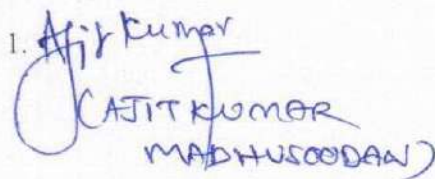 1. Ajit Kumar
(AJITKUMAR
MADHUSOODAN)